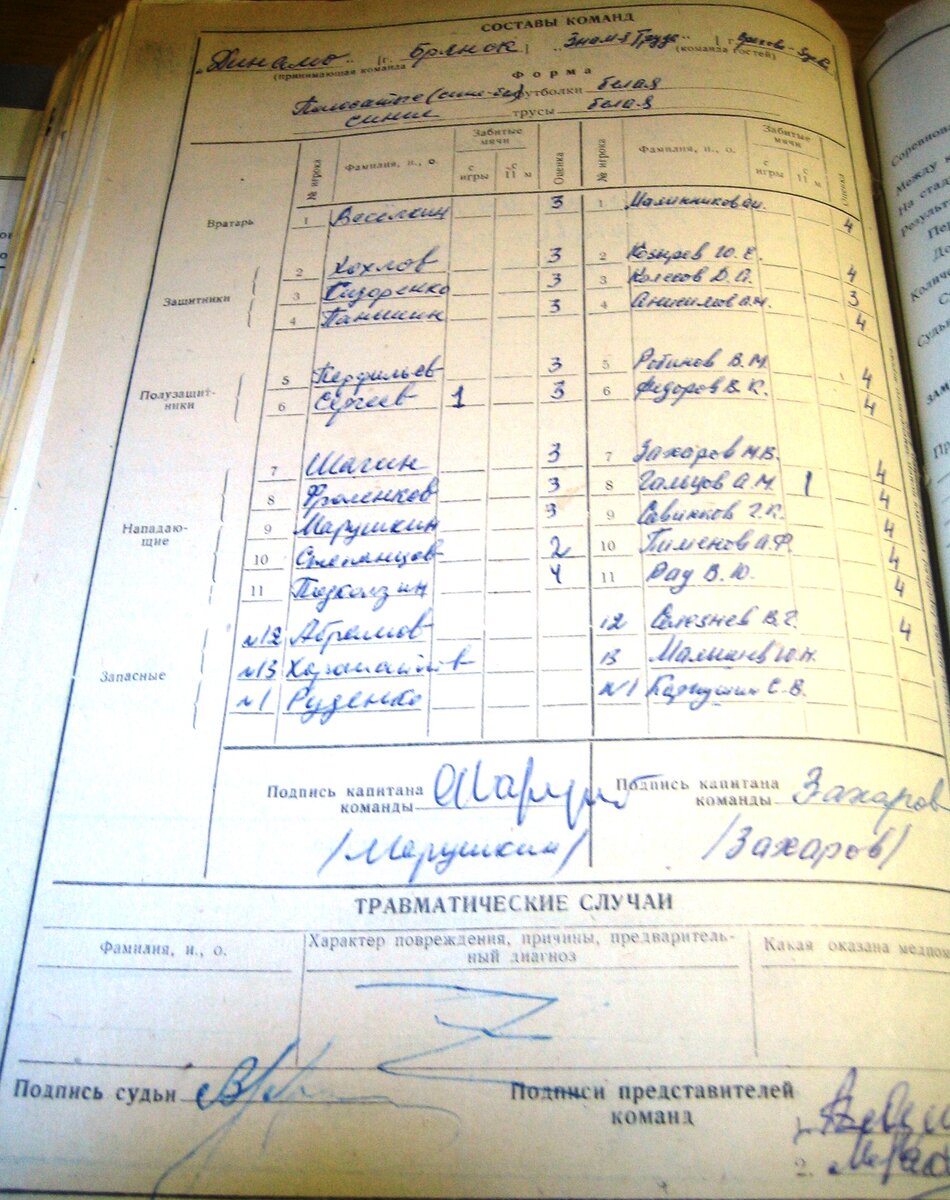 СОСТАВЫ КОМАНД
„Динамо" (г. Брянск) „Знамя Труда" (г. Орехово-Зуев
(принимающая команда (команда гостей)
Форма
Полосатые (сине-бел) футболки белая
синие трусы белая
№ игрока Фамилия, и., о. Забитые мячи с игры с 11 м Оценка № игрока Фамилия, и., о. Забитые мячи с игры с 11 м Оценка
Вратарь 1 Веселкин 3 1 Малинников 4
2 Хохлов 3 2 Козырев Ю. Е. 4
Защитники 3 Сидоренко 3 3 Колесов Д. А. 3
4 Паншин 3 4 Анисимов А.Н. 4
5 Перфильев 3 5 Робинов В. М. 4
Полузащитники 6 Сергеев 1 3 6 Федоров В. К. 4
7 Шагин 3 7 Захаров Н.В. 4
8 Фроленков 3 8 Гольцов А. М. 1 4
Нападающие 9 Марушкин 3 9 Савинков Г.К. 4
10 Степанцов 2 10 Пименов А.Ф. 4
11 Подколзин 4 11 Рау В. Ю. 4
№12 Абрамов 12 Селезнев В.Г. 4
Запасные №13 13 Ю.Н.
№1 Руденко №1 С. В.
Подпись капитана Подпись капитана
команды команды Захаров
/Марушкин/ /Захаров/
ТРАВМАТИЧЕСКИЕ СЛУЧАИ
Фамилия, и., о. Характер повреждения, причины, предваритель-
ный диагноз Какая оказана медпом
Подпись судьи Подписи представителей
команд
2.
Соревно
Между
На стад
Результ
Пер
До
Колич
Судьи
ЗАМ